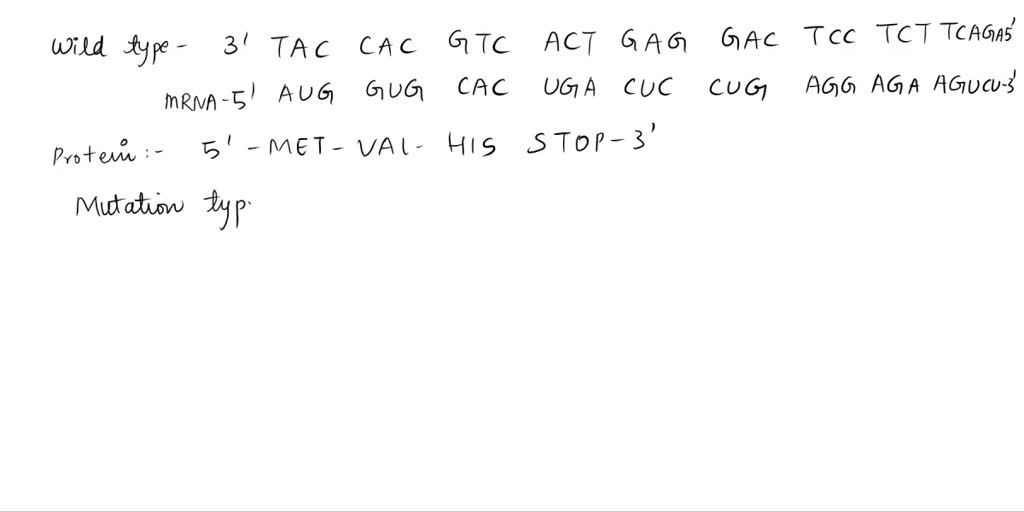 Wild type - 3' TAC CAC GTC ACT GAG GAC TCC TCT TCAGA5'
mRNA-5' AUG GUG CAC UGA CUC CUG AGG AGA AGUCU-3'
Protein:- 5' -MET- VAL- HIS STOP-3'
Mutation typ.